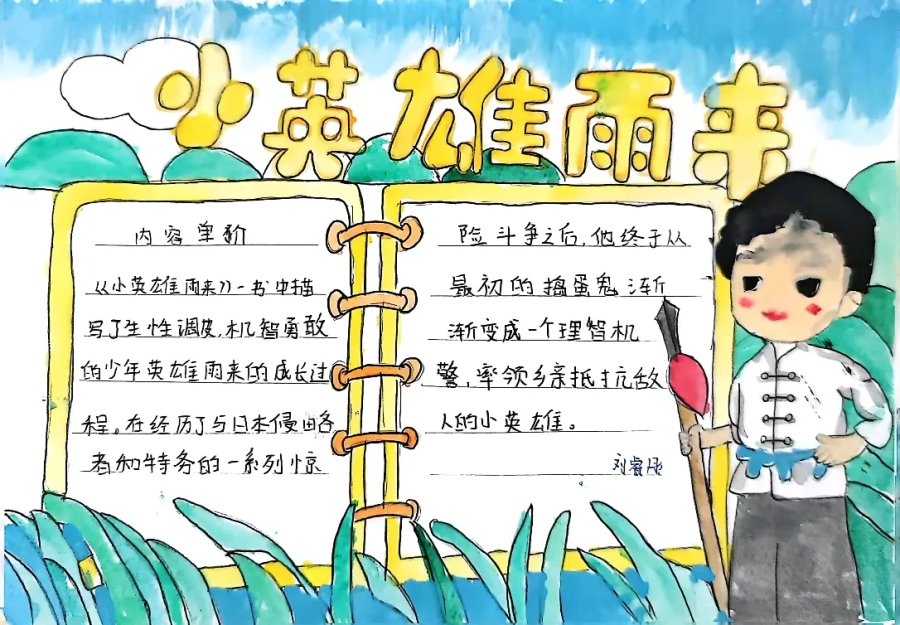 小英雄雨来
内容单阶
《小英雄雨来》一书中描
写了生性调皮,机智勇敢
的少年英雄雨来的成长过
程。在经历了与日本侵略
者和特务的一系列惊
险斗争之后,他终于从
最初的捣蛋鬼渐
渐变成一个理智机
警,率领乡亲抵抗敌
人的小英雄。
刘睿